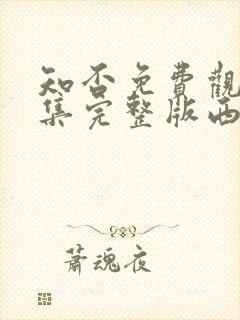 知否免費觀
集完整版西
蕭魂夜